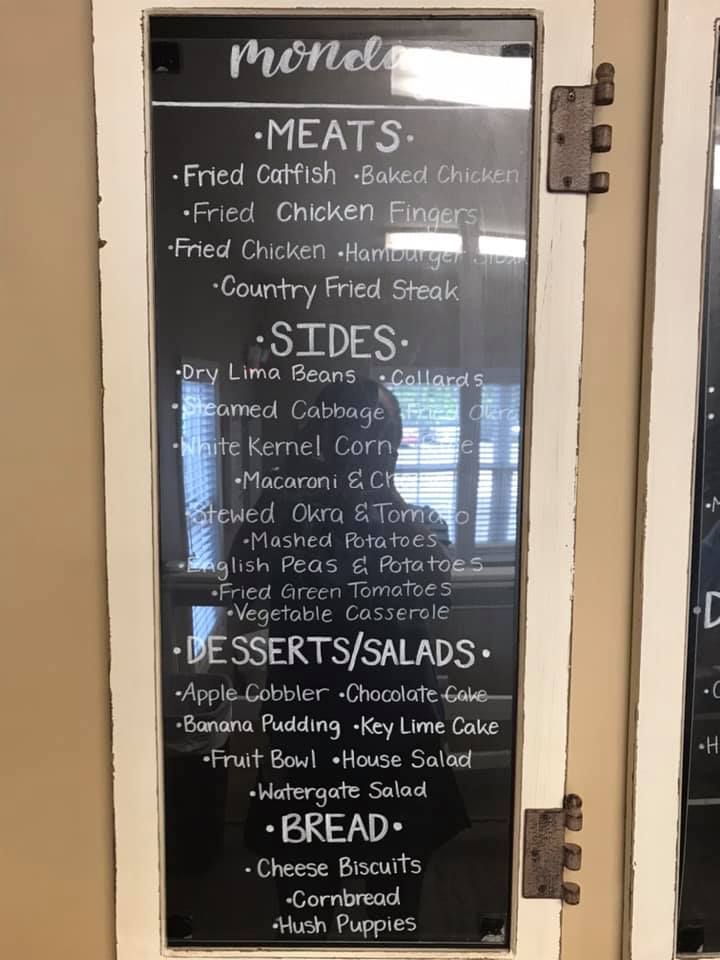 monda
·MEATS·
·Fried Catfish ·Baked Chicken
·Fried Chicken Fingers
·Fried Chicken ·Hamburger
·Country Fried Steak
·SIDES·
·Dry Lima Beans ·Collards
·Steamed Cabbage ·Fried Okra
·White Kernel Corn
·Macaroni &
·Stewed Okra & Tomato
·Mashed Potatoes
·English Peas & Potatoes
·Fried Green Tomatoes
·Vegetable Casserole
·DESSERTS/SALADS·
·Apple Cobbler ·Chocolate Cake
·Banana Pudding ·Key Lime Cake
·Fruit Bowl ·House Salad
·Watergate Salad
·BREAD·
·Cheese Biscuits
·Cornbread
·Hush Puppies